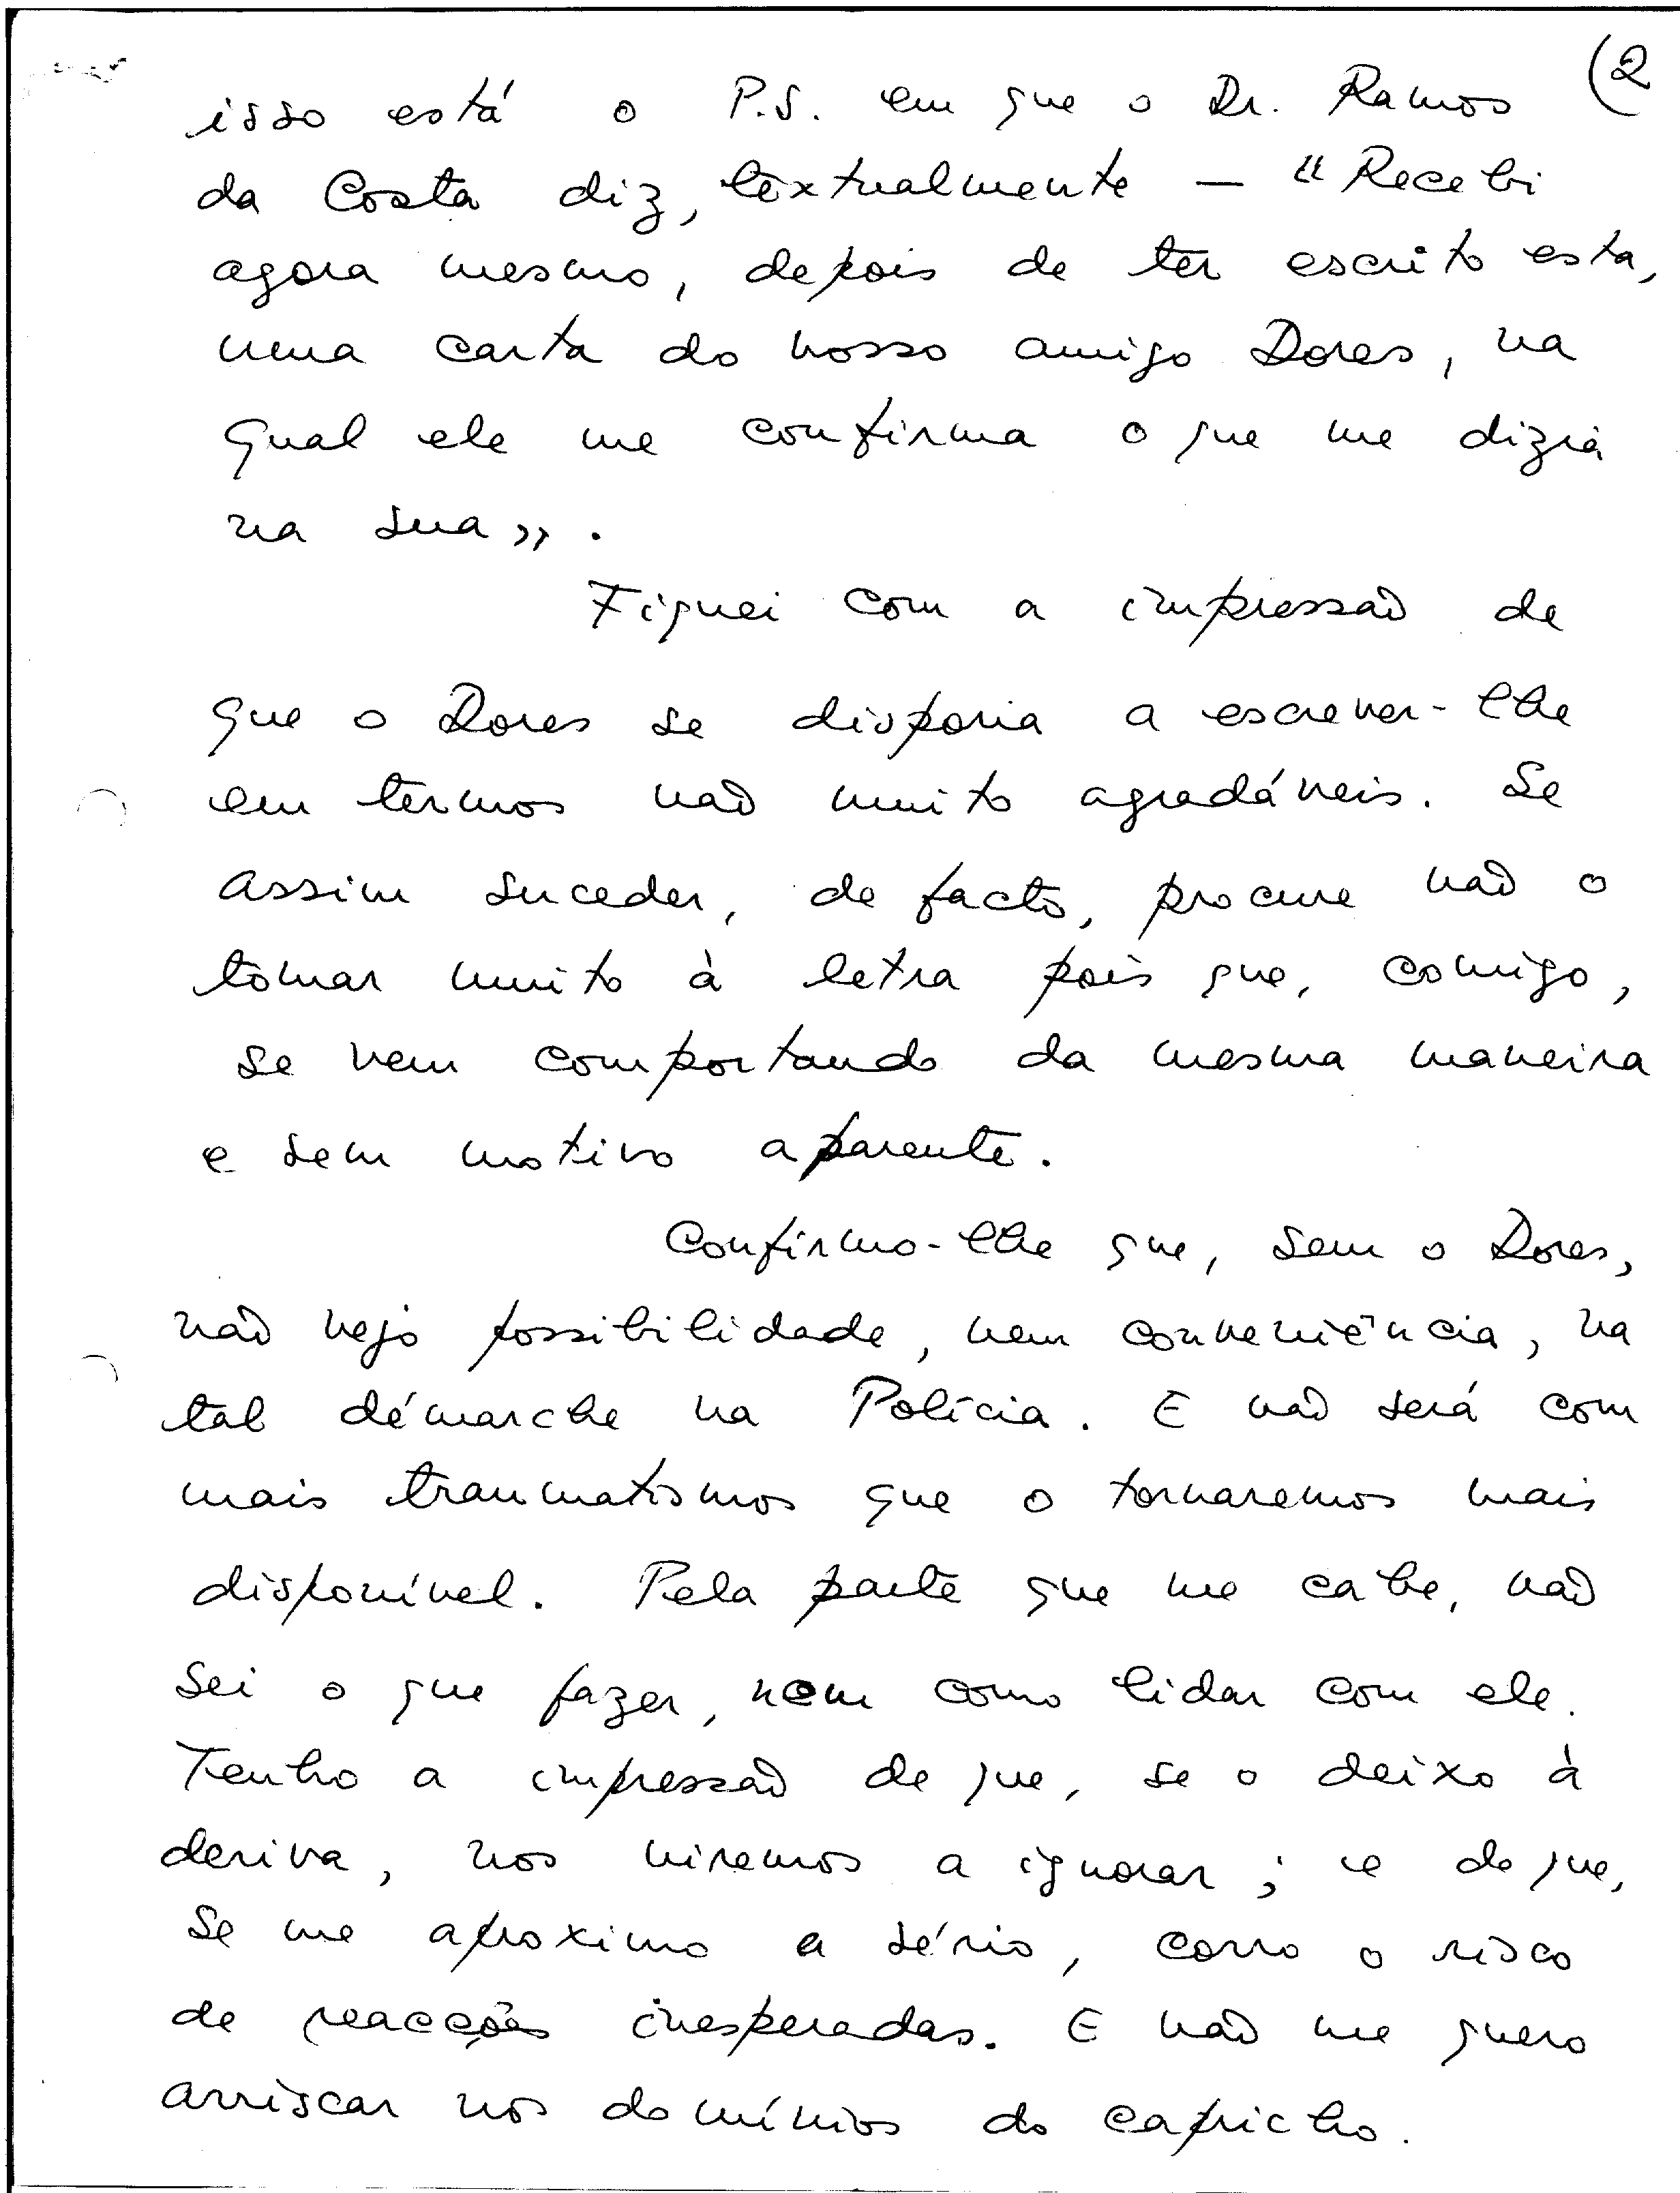 (2
isso está o P.S. em que o Dr. Ramos
da Costa diz, textualmente — "Recebi
agora mesmo, depois de ter escrito esta,
uma carta do nosso amigo Dores, na
qual ele me confirma o que me dizia
na sua".
Fiquei com a impressão de
que o Dores se disporia a escrever-lhe
em termos não muito agradáveis. Se
assim suceder, de facto, procure não o
tomar muito à letra pois que, comigo,
se vem comportando da mesma maneira
e sem motivo aparente.
Confirmo-lhe que, sem o Dores,
não vejo possibilidade, nem conveniência, na
tal démarche na Polícia. E não será com
mais traumatismos que o tornaremos mais
disponível. Pela parte que me cabe, não
sei o que fazer, nem como lidar com ele.
Tenho a impressão de que, se o deixo à
deriva, nos viremos a ignorar; e de que,
se me aproximo a sério, corro o risco
de reacções inesperadas. E não me quero
arriscar nos domínios do capricho.